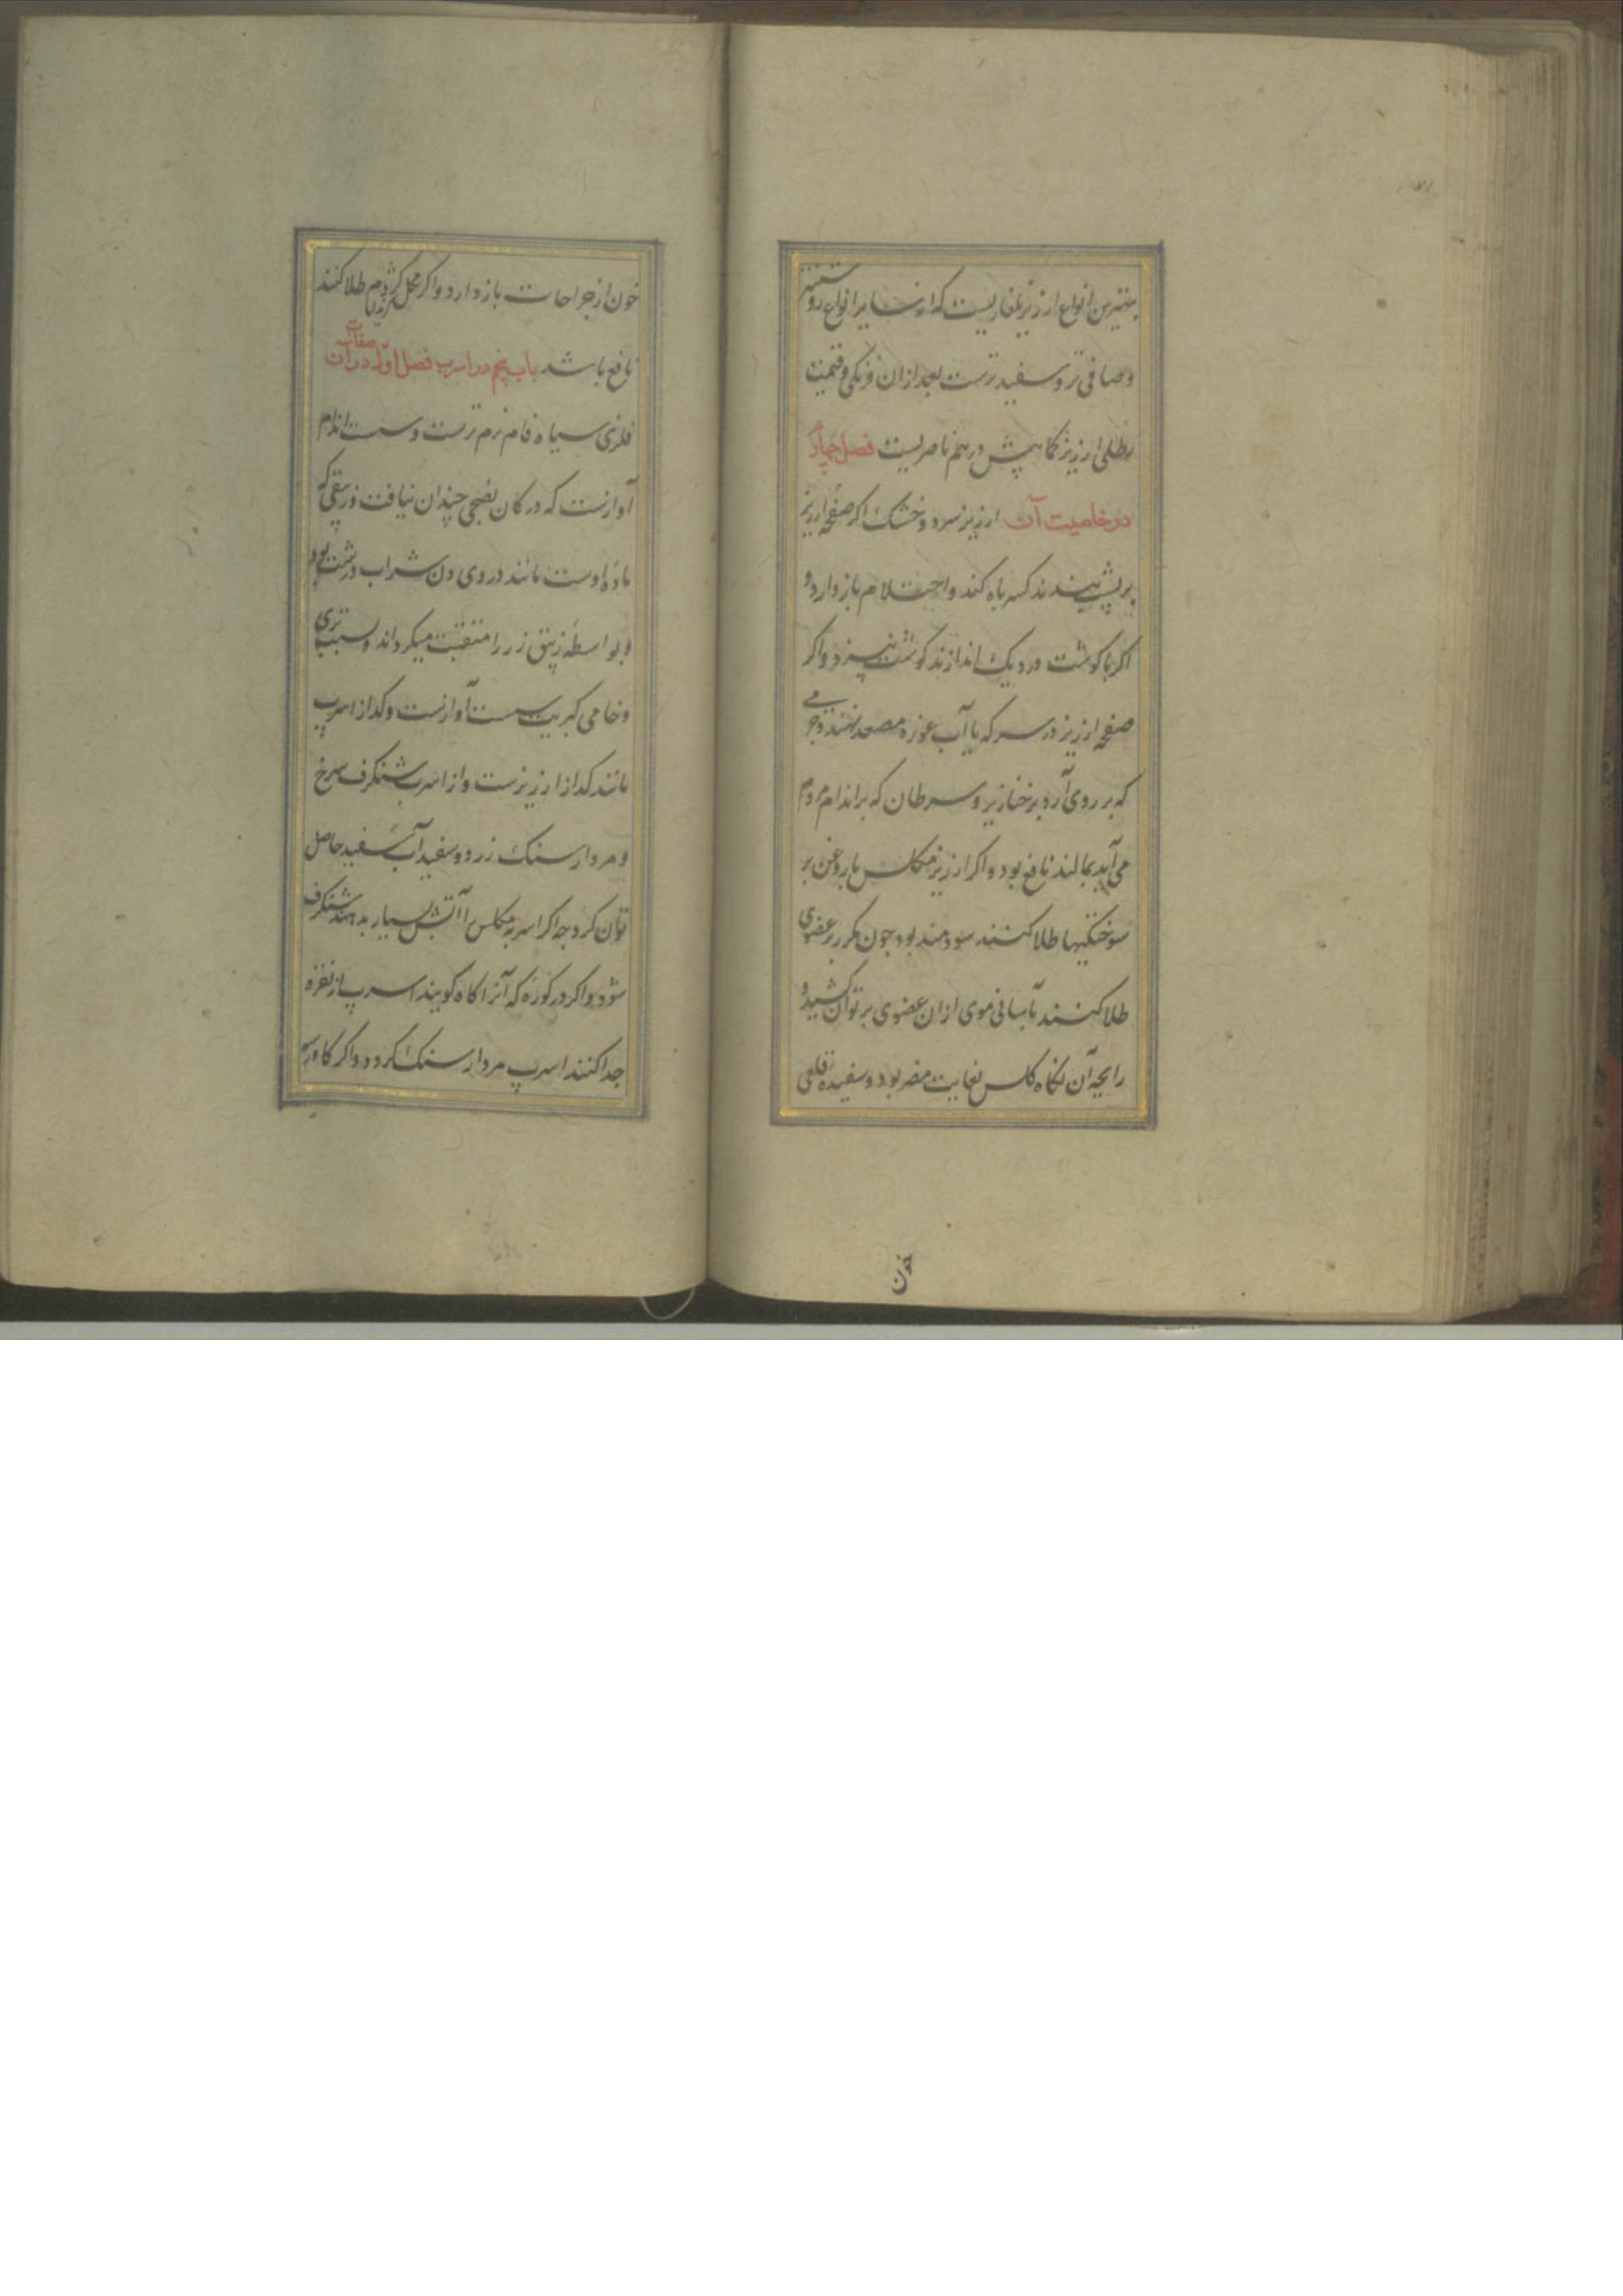 بهترین انواع ارزیز بلغاریست که از سایر انواع روشنتر
و صافی تر و سفیدترست بعد از آن فرنکی و قیمت
رطلی ارزیز کمابیش درهم ناصریست فصل چهارم
در خاصیت آن ارزیز سرد و خشک اکر صفحه ارزیز
بر پشت بندند کسر باه کند و احتلام باز دارد و
اکر با کوشت در دیک اندازند کوشت نپزد و اکر
صفحه ارزیز در سرکه یا آب غوره مصعد نهند و جرمی
که بر روی آرد بر خنازیر و سرطان که بر اندام مردم
می آید بمالند نافع بود و اکر ارزیز مکلس با روغن بر
سوختکیها طلا کنند سودمند بود جون مکرر بر عضوی
طلا کنند بآسانی موی از ان عضوی بر توان کشید و
رایحه آن بکاه کلس بغایت مضر بود و سفیده قلعی
خون
خون از جراحات باز دارد و اکر بر محل کژدم طلا کنند
نافع باشد باب پنجم در اسرب فصل اول در صفات آن
فلزی سیاه فام نرم ترست و سست اندام
آوازست که در کان نضجی چندان نیافت و زیبقی که
ماده اوست مانند دردی دن شراب درشت بود
و بواسطه زیبق زر را متفتت میکرداند و بسبب تری
و خامی کبریت سست آوازست و کداز اسرب
مانند کداز ارزیزست و از اسرب شنکرف سرخ
و مردار سنک زرد و سفیدآب سفید حاصل
توان کرد چه اکر اسرب مکلس را آتش بسیار بدهند شنکرف
شود و اکر در کوره که آنرا کاه کویند اسرب از نقره
جدا کنند اسرب مردار سنک کردد و اکر کاورسه